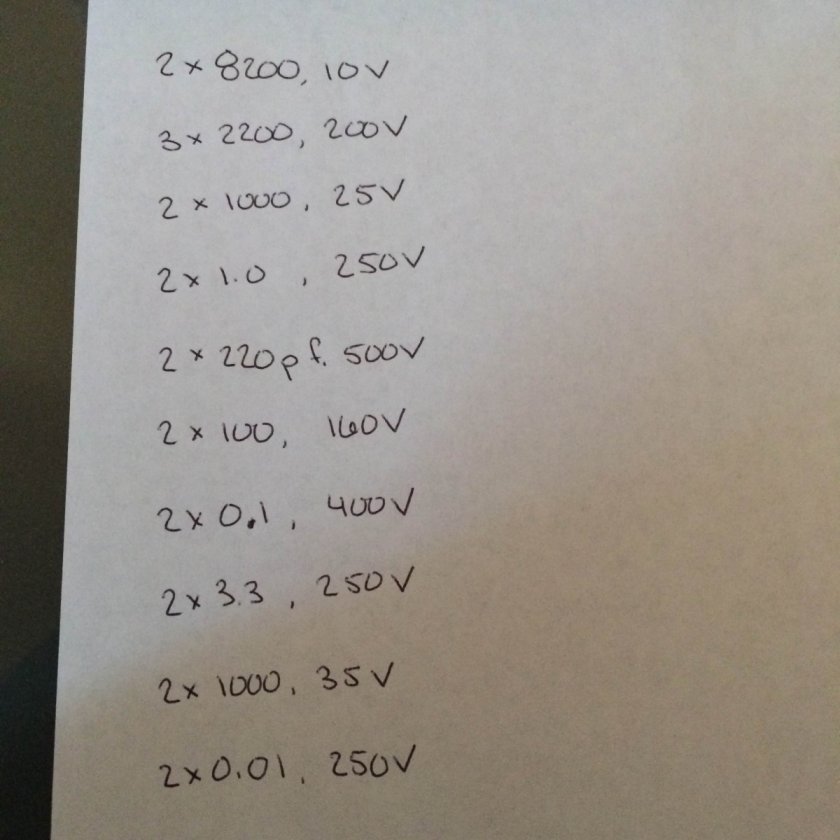 2 x 8200, 10V
3 x 2200, 200V
2 x 1000, 25V
2 x 1.0 , 250V
2 x 220pf. 500V
2 x 100, 160V
2 x 0.1, 400V
2 x 3.3, 250V
2 x 1000, 35V
2 x 0.01, 250V